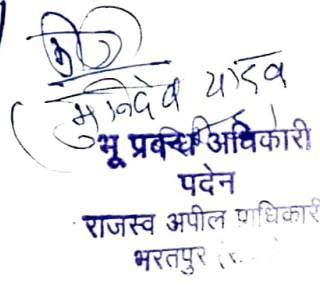 (मुनिदेव यादव
भू प्रबन्ध अधिकारी
पदेन
राजस्व अपील प्राधिकारी
भरतपुर